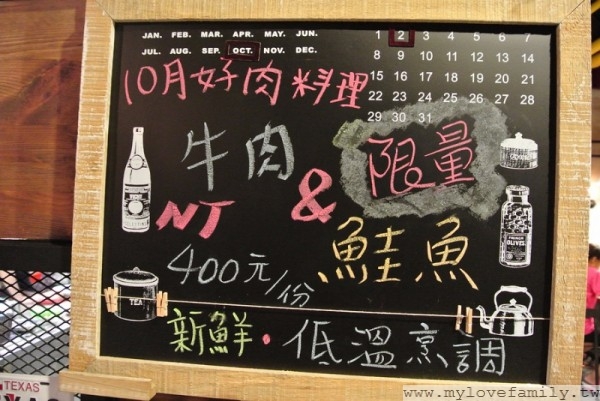 JAN. FEB. MAR. APR. MAY. JUN.
JUL. AUG. SEP. OCT. NOV. DEC.
1 2 3 4 5 6 7
8 9 10 11 12 13 14
15 16 17 18 19 20 21
22 23 24 25 26 27 28
29 30 31
10月好肉料理
牛肉
限量
&
NT
400元/份
鮭魚
OLIVES
TEA
新鮮·低溫烹調
TEXAS
www.mylovefamily.tw